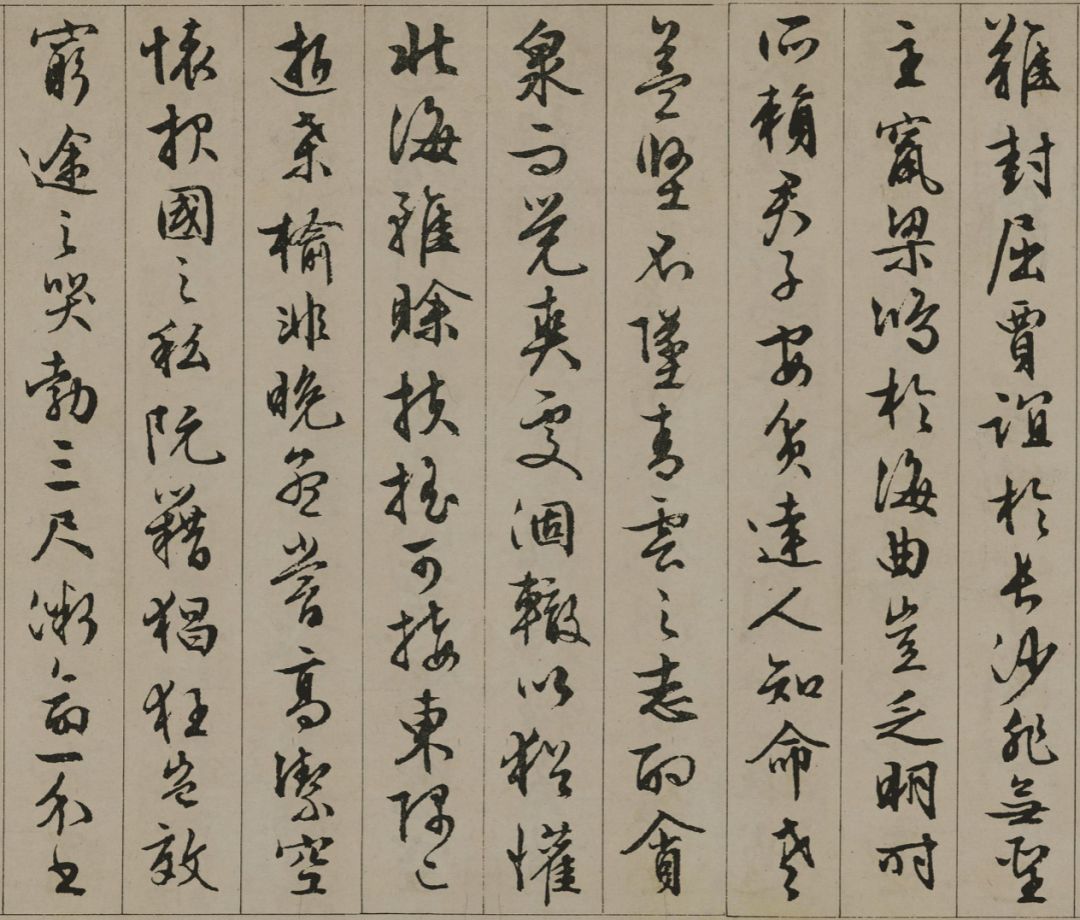 難封屈賈誼於長沙非無聖
主竄梁鴻於海曲豈乏明時
所賴君子安貧達人知命老
益堅不墜青雲之志酌貪
泉而覺爽處涸轍以猶懽
北海雖賒扶搖可接東隅已
逝桑榆非晚孟嘗高潔空
懷報國之私阮籍猖狂豈效
窮途之哭勃三尺微命一介書